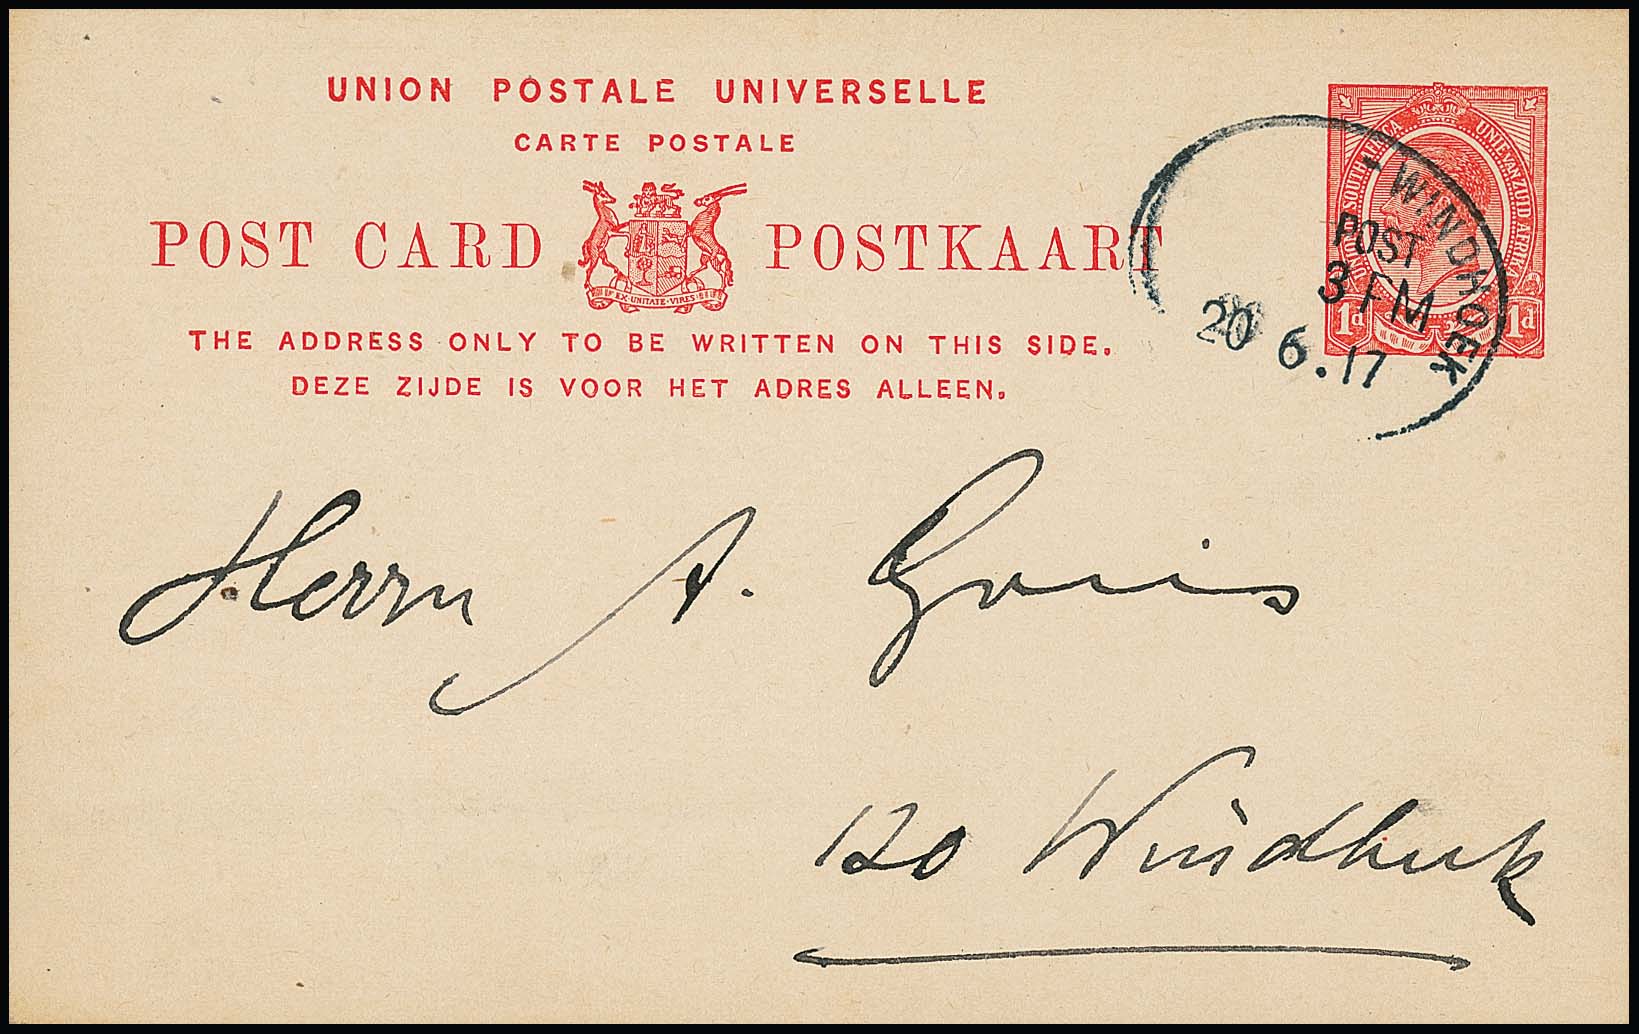 UNION POSTALE UNIVERSELLE
CARTE POSTALE
POST CARD POSTKAART
EX·UNITATE·VIRES
THE ADDRESS ONLY TO BE WRITTEN ON THIS SIDE.
DEZE ZIJDE IS VOOR HET ADRES ALLEEN.
UNION OF SOUTH AFRICA UNIE VAN ZUID AFRIKA
1d 1d
WINDHOEK
POST
3 PM
20 6.17
Herrn A.
120 Windhuk